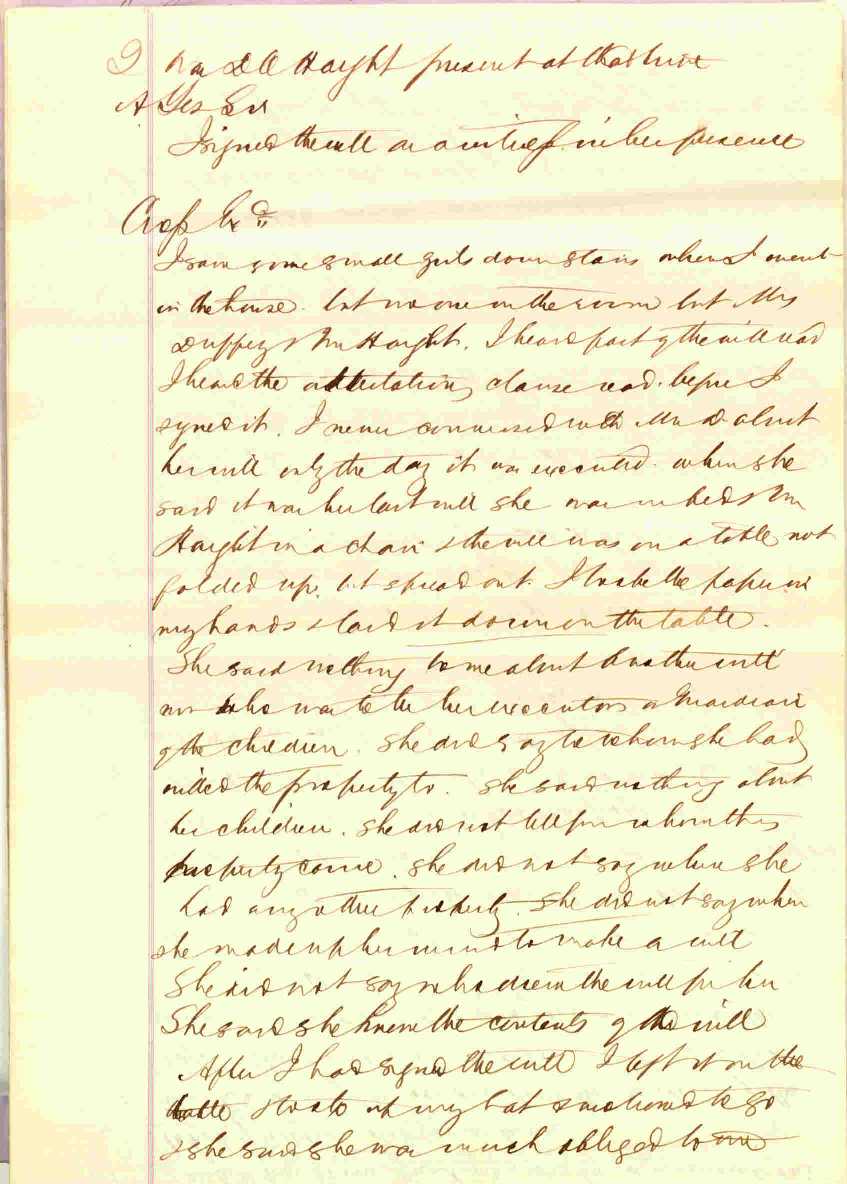 Q Was D O Haight present at that time
A Yes Sir
I signed the will as a witness in her presence
Cross Exd
I saw some small girls down stairs when I went
in the house. but no one in the room but Mrs
Duffey & Mr Haight. I heard part of the will read
I heard the attestation clause read. before I
signed it. I never conversed with Mrs D about
her will only the day it was executed. when she
said it was her last will she was in bed & Mr
Haight in a chair & the will was on a table not
folded up. but spread out. I took the paper in
my hands & laid it down on the table.
She said nothing to me about another will
nor who was to be her executors or Guardian
of the children. She did say to whom she had
willed the property to. She said nothing about
her children. She did not tell from whom this
property came. she did not say where she
had any other property. She did not say when
she made up her mind to make a will
She did not say who drew the will for her
She said she knew the contents of the will
After I had signed the will I left it on the
table & took up my hat & motioned to go
& she said she was much obliged to me